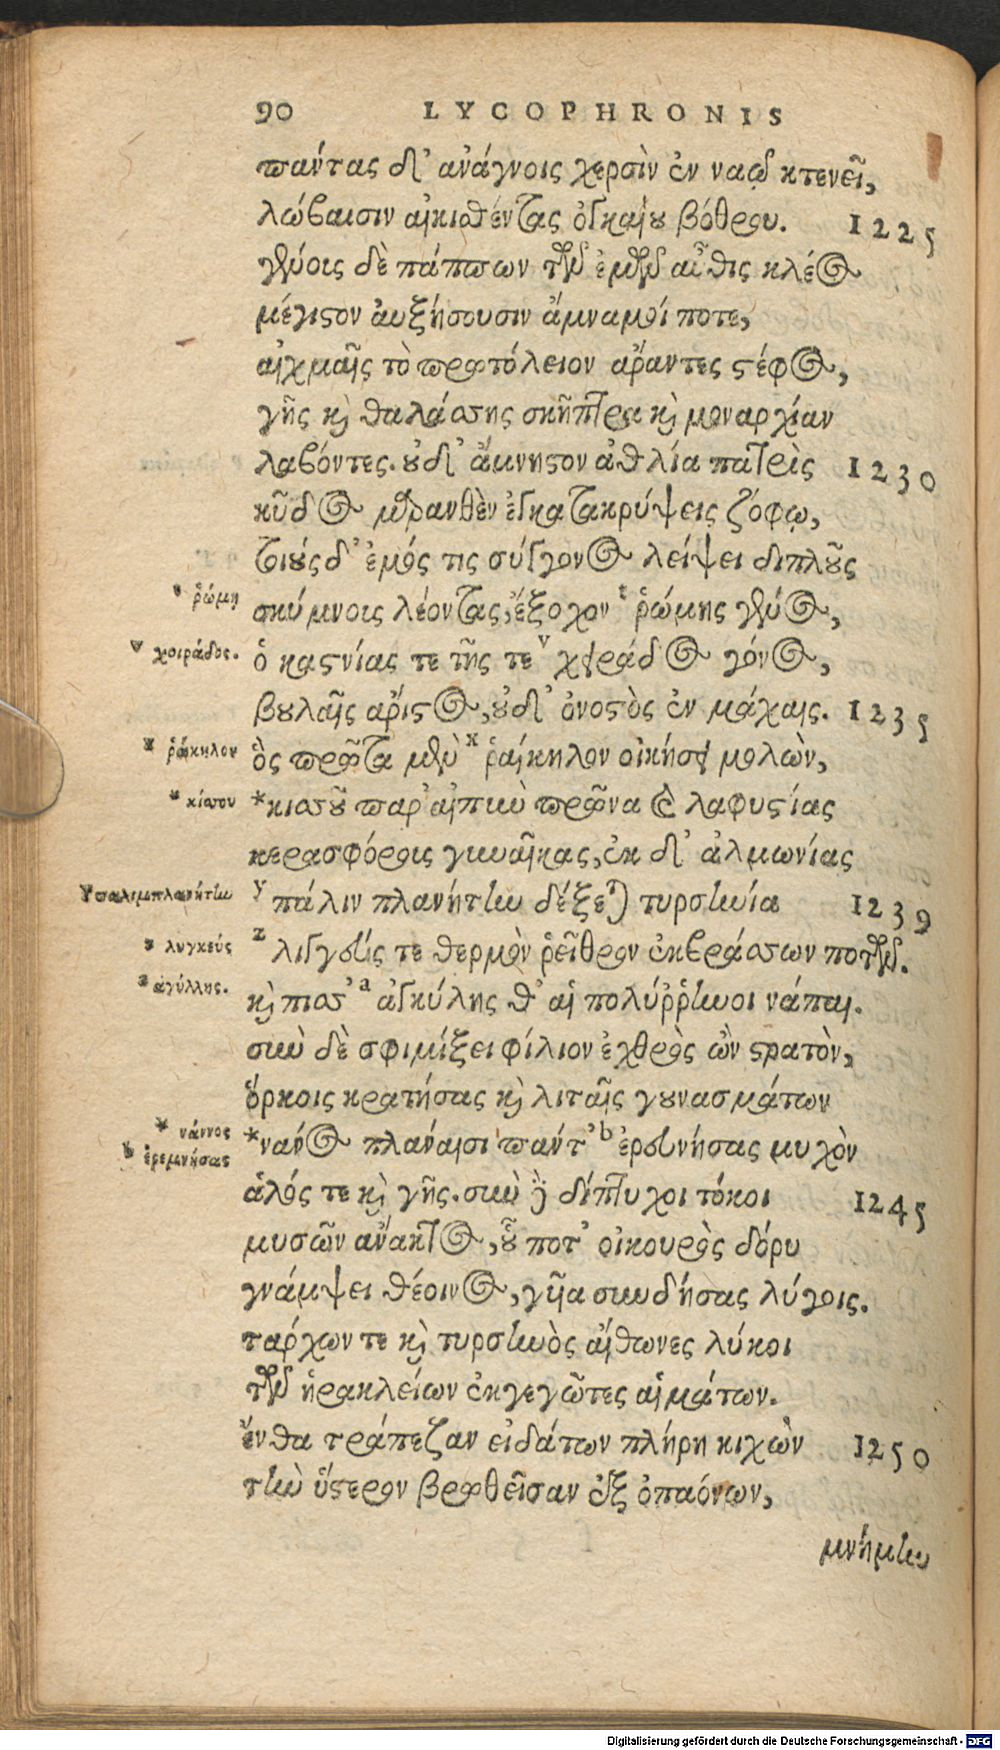 90 LYCOPHRONIS
πάντας δ' ἀνάγνοις χερσὶν ἐν ναῷ κτενεῖ,
λώβαισιν αἰκισθέντας ὀγκαίου βόθρου. 1225
γένοις δὲ πάππων τῶν ἐμῶν αὖθις κλέος
μέγιστον αὐξήσουσιν ἄμναμοί ποτε,
αἰχμαῖς τὸ πρωτόλειον ἄραντες στέφος,
γῆς καὶ θαλάσσης σκῆπτρα καὶ μοναρχίαν
λαβόντες. οὐδ' ἄμνηστον ἀθλία πατρὶς 1230
κῦδος μαρανθὲν ἐγκατακρύψεις ζόφῳ,
τοιούς δ' ἐμός τις σύγγονος λείψει διπλοῦς
t ῥώμῃ
σκύμνοις λέοντας, ἔξοχον t ῥώμης γένος,
v χοιράδος.
ὁ καστνίας τε τῆς τε v χειράδος γόνος,
βουλαῖς ἄριστος, οὐδ' ὀνοστὸς ἐν μάχαις. 1235
x ῥάκηλον
ὃς πρῶτα μὲν x ῥαίκηλον οἰκήσει μολὼν,
* κίσσον
*κισσοῦ παρ' αἰπὺν πρῶνα καὶ λαφυστίας
κερασφόρους γυναῖκας, ἐκ δ' ἀλμωνίας
y παλιμπλανήτην
y πάλιν πλανήτην δέξεται τυρσηνία 1239
z λυγκεύς
z λιγγεύς τε θερμὸν ῥεῖθρον ἐκβράσσων ποτῶν.
a ἀγύλλης.
καὶ πίσσ' a ἀγκύλης θ' αἱ πολύῤῥηνοι νάπαι.
σὺν δὲ σφι μίξει φίλιον ἐχθρὸς ὢν στρατὸν,
ὅρκοις κρατήσας καὶ λιταῖς γουνασμάτων
* νάννος
b ἐρεμνήσας
*νάνος πλάναισι πάντ' b ἐρευνήσας μυχὸν
ἁλός τε καὶ γῆς. σὺν δὲ δίπτυχοι τόκοι 1245
μυσῶν ἄνακτος, οὗ ποτ' οἰκουρὸς δόρυ
γνάμψει θέοινος, γυῖα συνδήσας λύγοις.
ταρχων τε καὶ τυρσηνὸς αἴθωνες λύκοι
τῶν ἡρακλείων ἐκγεγῶτες αἱμάτων.
ἔνθα τράπεζαν εἰδάτων πλήρη κιχὼν 1250
τὴν ὕστερον βρωθεῖσαν ἐξ ὀπαόνων,
μνήμην
Digitalisierung gefördert durch die Deutsche Forschungsgemeinschaft - DFG